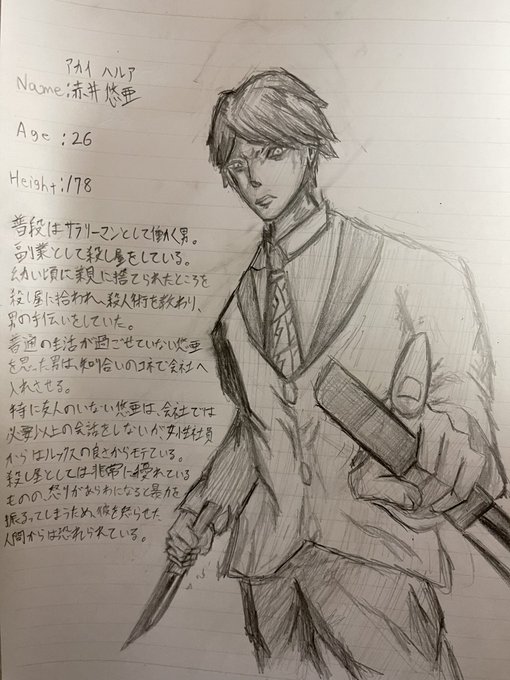 アカイ ハルア
Name:赤井 悠亜
Age:26
Height:178
普段はサラリーマンとして働く男。
副業として殺し屋をしている。
幼い頃に親に捨てられたところを
殺し屋に拾われ、殺人術を教わり、
男の手伝いをしていた。
普通の生活が過ごせていない悠亜
を思った男は、知り合いのコネで会社へ
入れさせる。
特に友人のいない悠亜は、会社では
必要以上の会話をしないが、女性社員
からはルックスの良さからモテている。
殺し屋としては非常に優れている
ものの、怒りがあらわになると暴力を
振るってしまうため、彼を怒らせた
人間からは恐れられている。